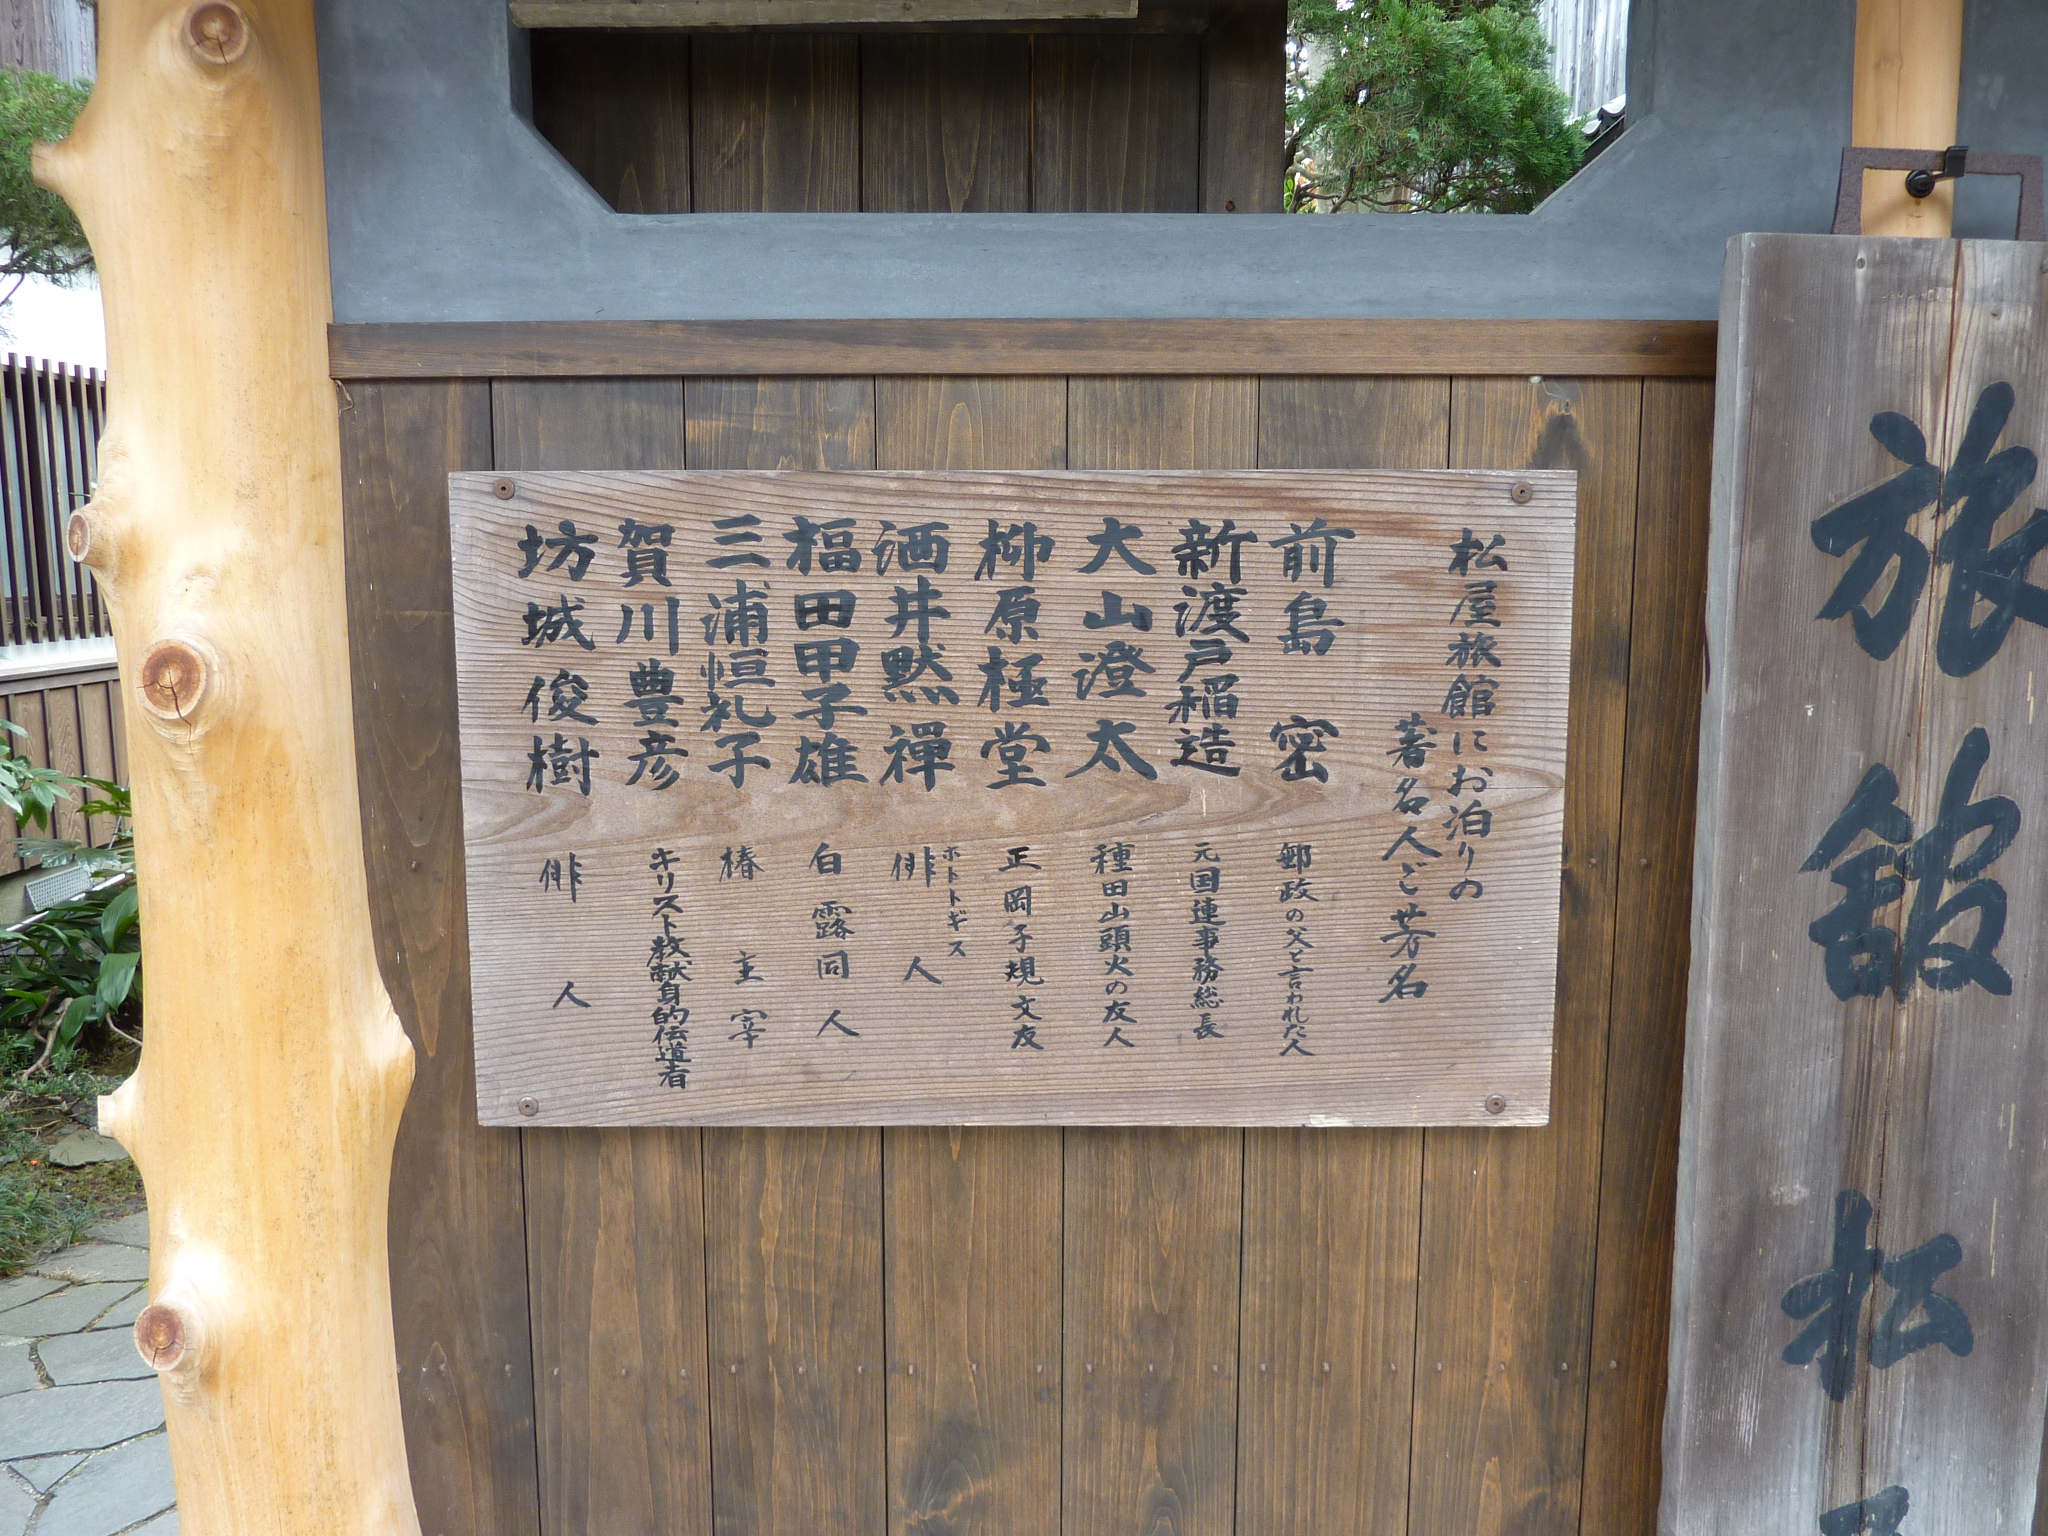 旅館 松
松屋旅館にお泊りの
著名人ご芳名
前島密 郵政の父と言われた人
新渡戸稲造 元国連事務総長
大山澄太 種田山頭火の友人
柳原極堂 正岡子規文友
酒井黙禅 ホトトギス俳人
福田甲子雄 白露同人
三浦恒礼子 椿主宰
賀川豊彦 キリスト教献身的伝道者
坊城俊樹 俳人